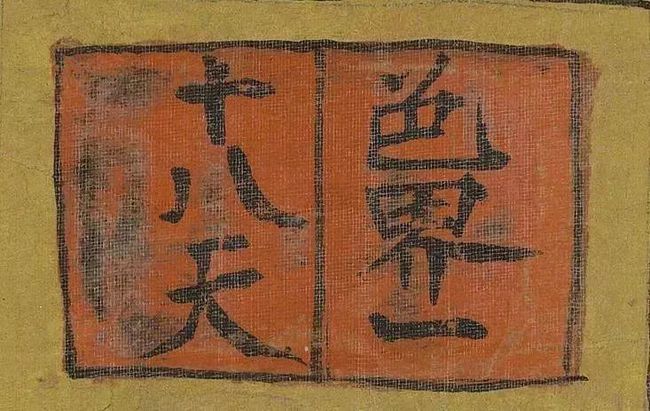 色界一
十八天